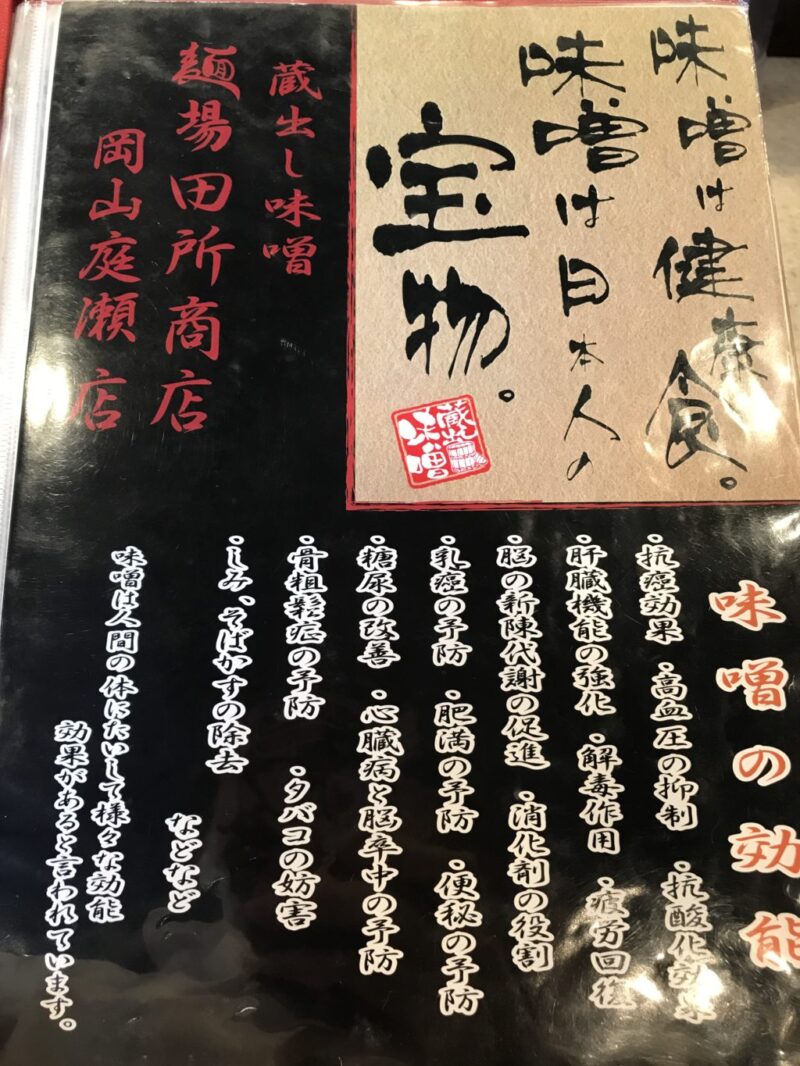 味噌は健康食。
味噌は日本人の
宝物。
蔵出し味噌
蔵出し味噌
麺場田所商店
岡山庭瀬店
味噌の効能
・抗癌効果 ・高血圧の抑制 ・抗酸化効果
・肝臓機能の強化 ・解毒作用 ・疲労回復
・脳の新陳代謝の促進 ・消化剤の役割
・乳癌の予防 ・肥満の予防 ・便秘の予防
・糖尿の改善 ・心臓病と脳卒中の予防
・骨粗鬆症の予防 ・タバコの妨害
・しみ、そばかすの除去
などなど
味噌は人間の体にたいして様々な効能
効果があると言われています。